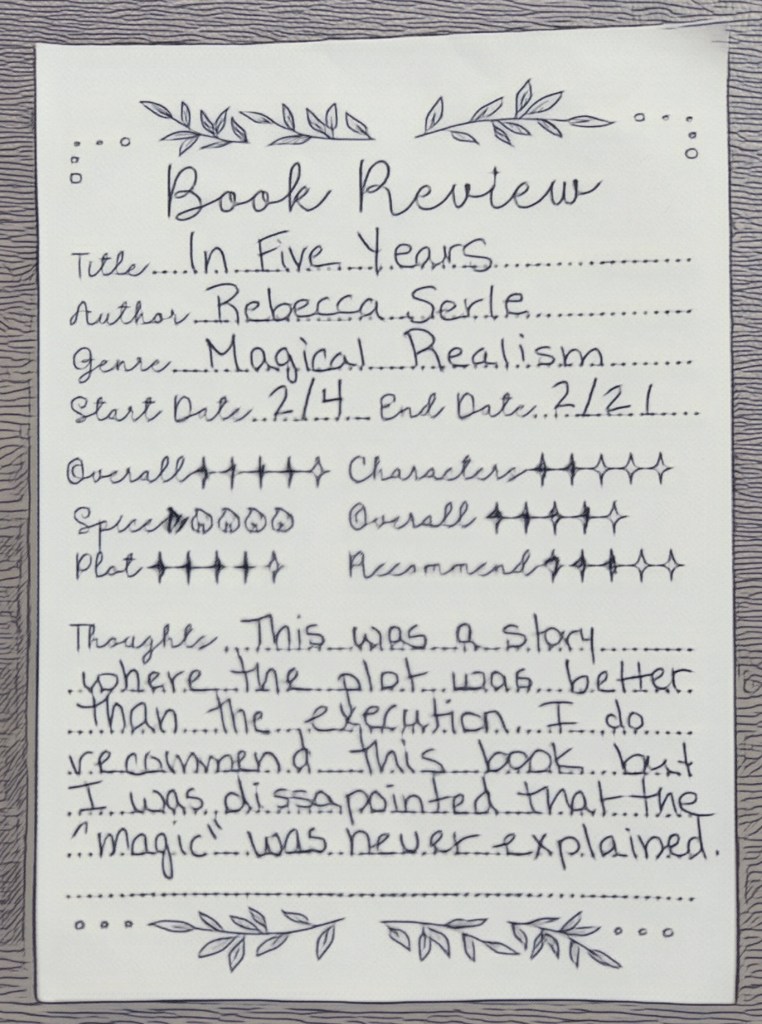 Book Review
Title In Five Years
Author Rebecca Serle
Genre Magical Realism
Start Date 2/4 End Date 2/21
Overall Characters
Spice Overall
Plot Recommend
Thoughts This was a story
where the plot was better
than the execution. I do
recommend this book but
I was dissapointed that the
"magic" was never explained.